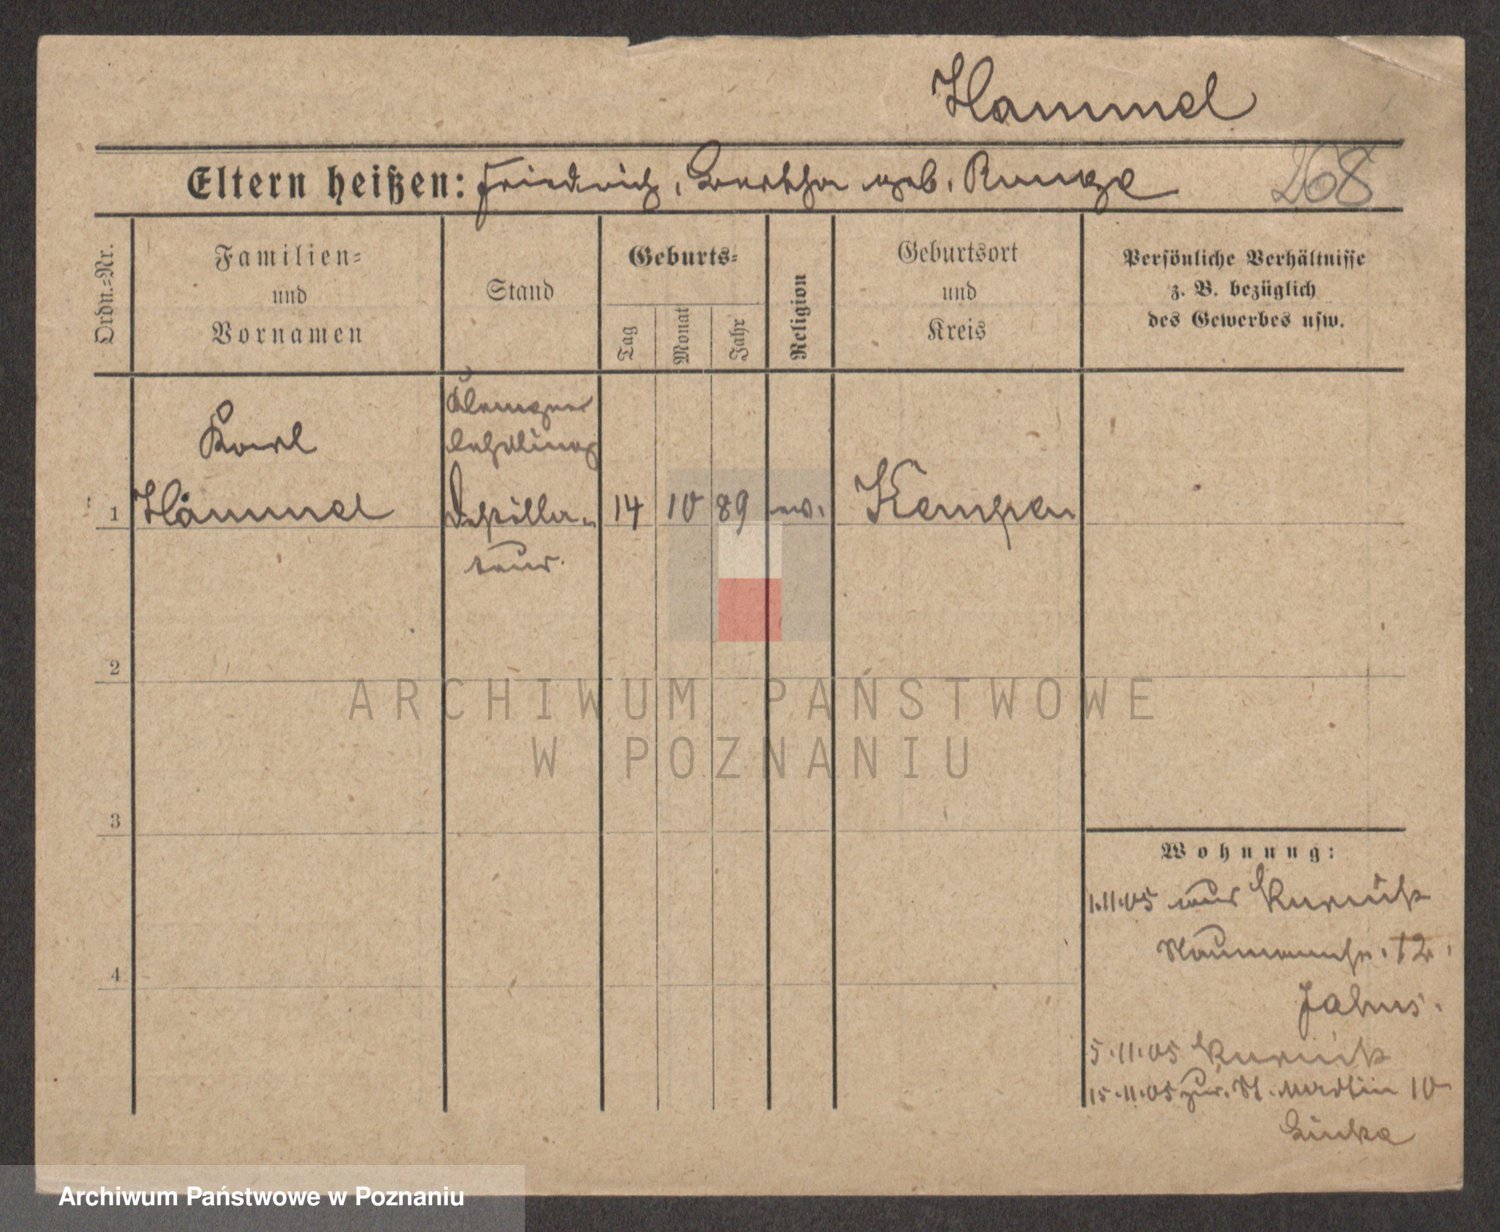 Hammel
Eltern heißen: Friedrich, Bertha geb. Runge
268
Ordn.-Nr.
Familien-
und
Vornamen
Stand
Geburts-
Tag
Monat
Jahr
Religion
Geburtsort
und
Kreis
Persönliche Verhältnisse
z. B. bezüglich
des Gewerbes usw.
Karl
Klempner
lehrling
1 Hammel
Destilla-
teur
14 10 89 ev. Kempen
2
3
4
ARCHIWUM PAŃSTWOWE
W POZNANIU
Wohnung:
1.11.05 aus Kurnik
Naumannstr. 12.
5.11.05 Kurnik
15.11.05 zur. St. Martin 10
Archiwum Państwowe w Poznaniu